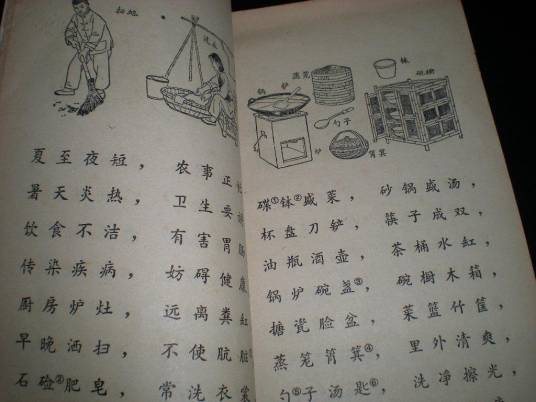 扫地
夏至夜短，农事正
暑天炎热，卫生要
饮食不洁，有害胃肠
传染疾病，妨碍健康
厨房炉灶，远离粪缸
早晚洒扫，不使肮脏
石硷②肥皂，常洗衣裳
蒸笼
锅 炉
勺子
炉
筲箕
碗橱
碟①钵②盛菜，砂锅盛汤，
杯盘刀铲，筷子成双，
油瓶酒壶，茶桶水缸，
锅炉碗盏③，碗橱木箱，
搪瓷脸盆，菜篮竹筐，
蒸笼筲箕④，里外清爽，
勺⑤子汤匙⑥，洗净擦光，